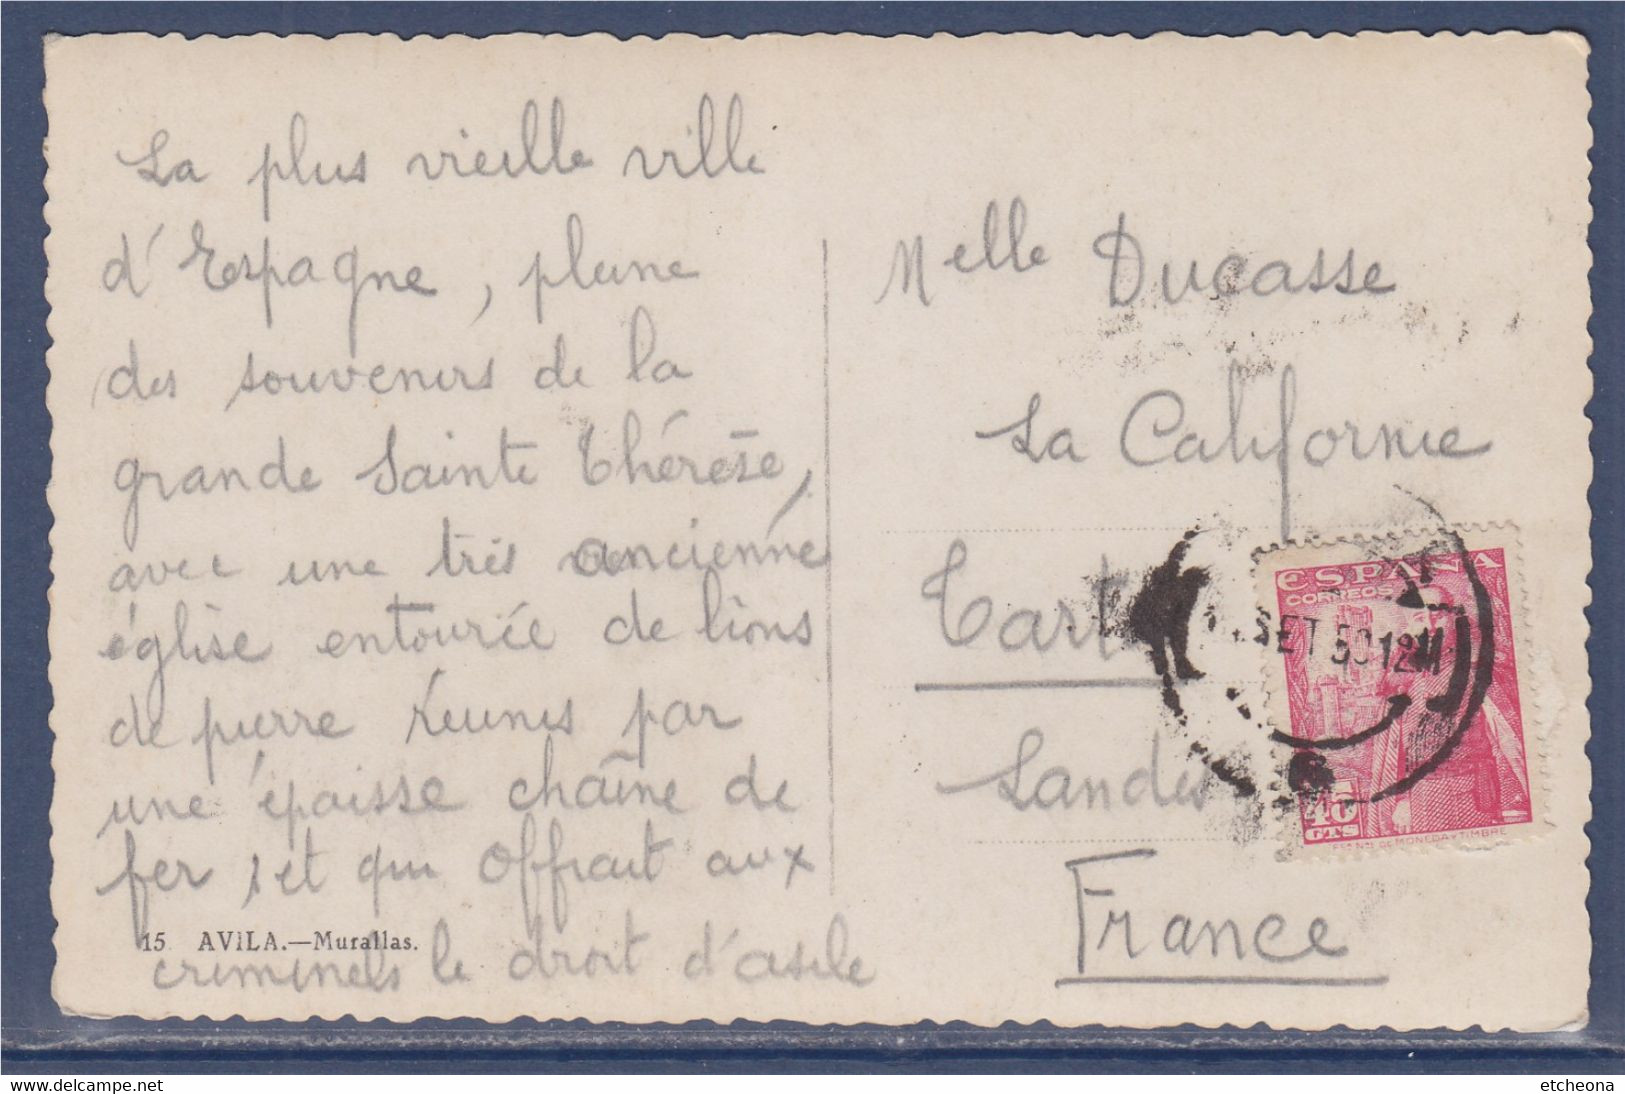 La plus vieille ville
d'Espagne, pleine
des souvenirs de la
grande Sainte Thérèse,
avec une très ancienne
église entourée de lions
de pierre réunis par
une épaisse chaîne de
fer, et qui offrait aux
criminels le droit d'asile
15 AVILA.—Murallas.
Melle Ducasse
La Californie
Landes
France
ESPAÑA
CORREOS
SET 50 12M
CTS
DE MONEDA Y TIMBRE
etcheona